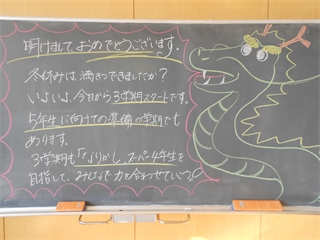 明けまして、おめでとうございます。
冬休みは、満きつできましたか？
いよいよ、今日から3学期スタートです。
5年生に向けての準備の学期でも
あります。
3学期も「ノリカし、スーパー4年生を
目指して、みんなで力を合わせていこう